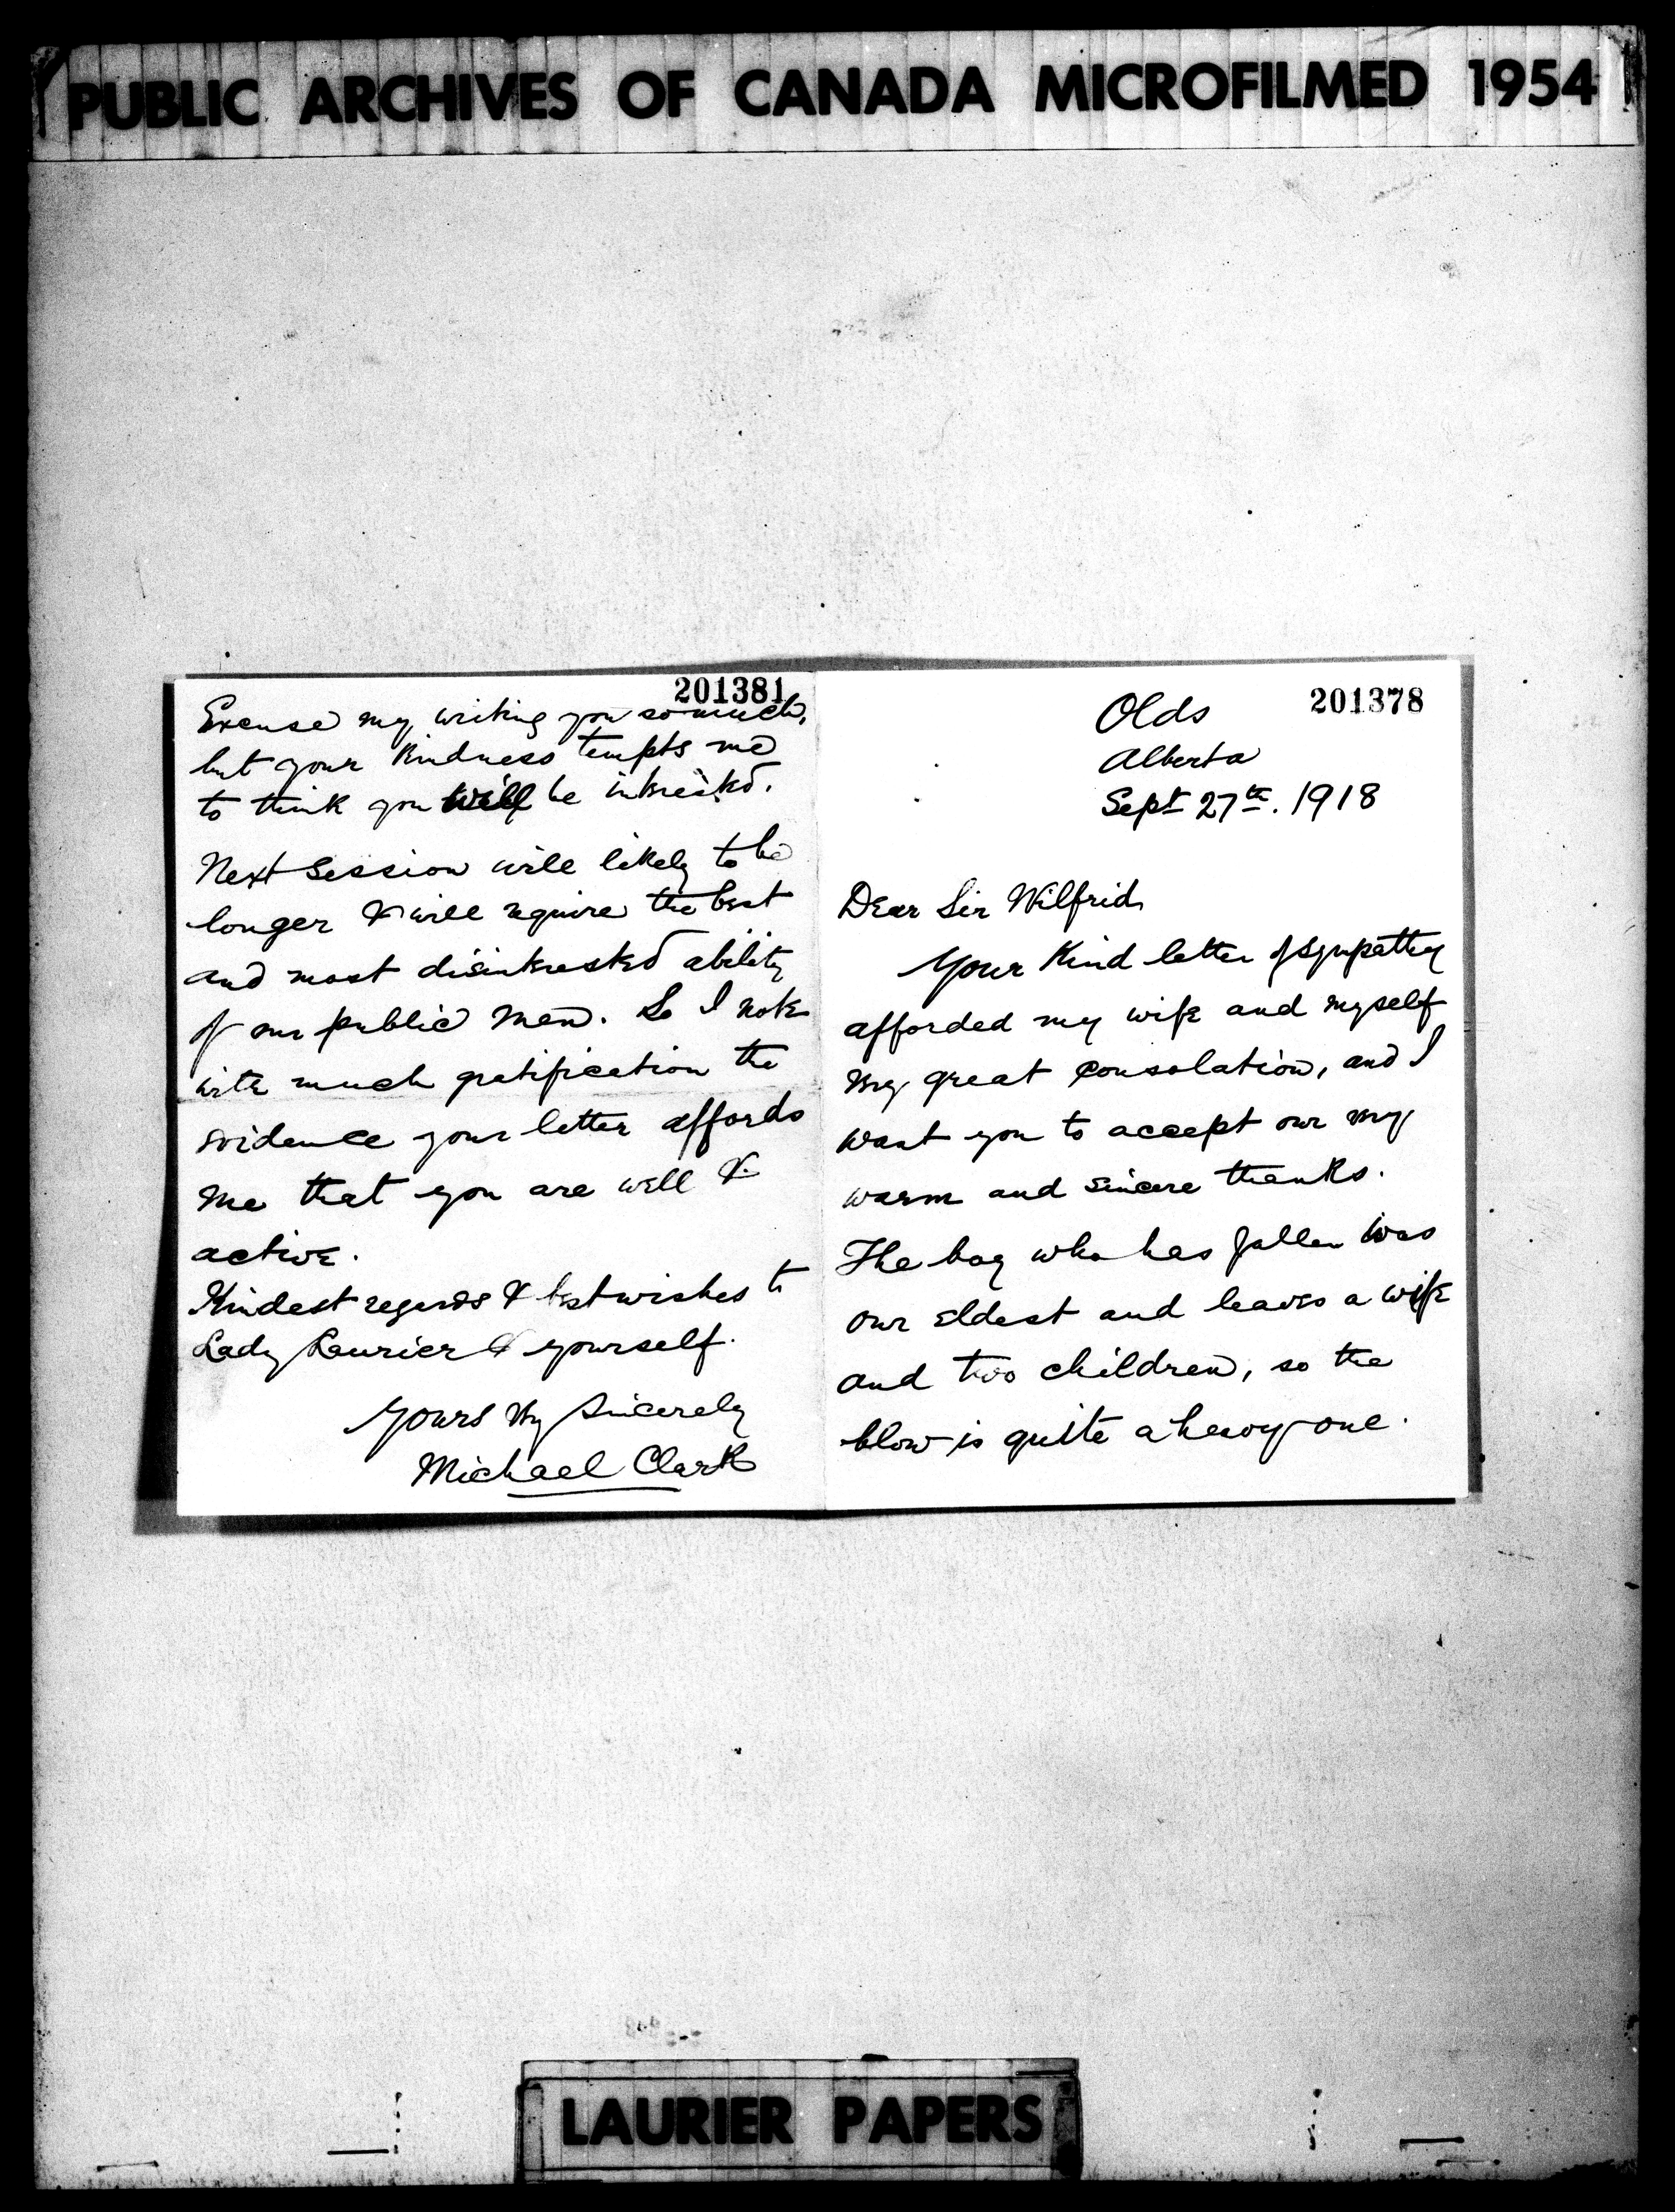 PUBLIC ARCHIVES OF CANADA MICROFILMED 1954
201381
Excuse my writing you so much,
but your kindness tempts me
to think you will be interested.
Next Session will likely to be
longer & will require the best
and most disinterested ability
of our public men. So I note
with much gratification the
evidence your letter affords
me that you are well &
active.
Kindest regards & best wishes to
Lady Laurier & yourself.
Yours Vy Sincerely
Michael Clark
201378
Olds
Alberta
Sept 27th. 1918
Dear Sir Wilfrid
Your kind letter of sympathy
afforded my wife and myself
very great consolation, and I
want you to accept our very
warm and sincere thanks.
The boy who has fallen was
our eldest and leaves a wife
and two children, so the
blow is quite a heavy one.
LAURIER PAPERS